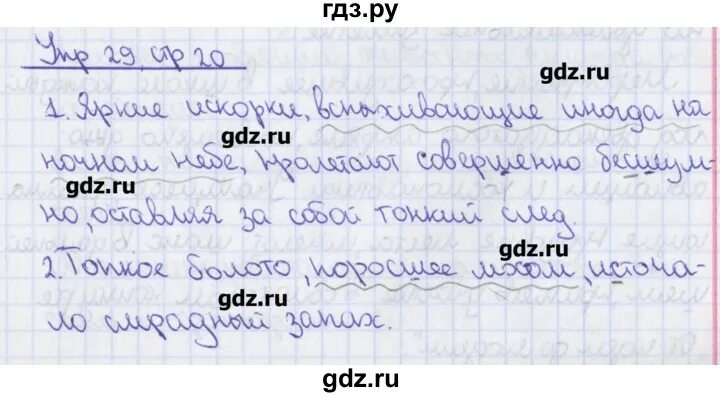 гдз.ру
Упр 29, стр 20
gdz.ru
1. Яркие искорки, вспыхивающие иногда на
gdz.ru
ночном небе, пролетают совершенно бесшум-
gdz.ru
но, оставляя за собой тонкий след.
gdz.ru
2. Топкое болото, поросшее мхом, источа-
gdz.ru
ло смрадный запах.
gdz.ru
gdz.ru